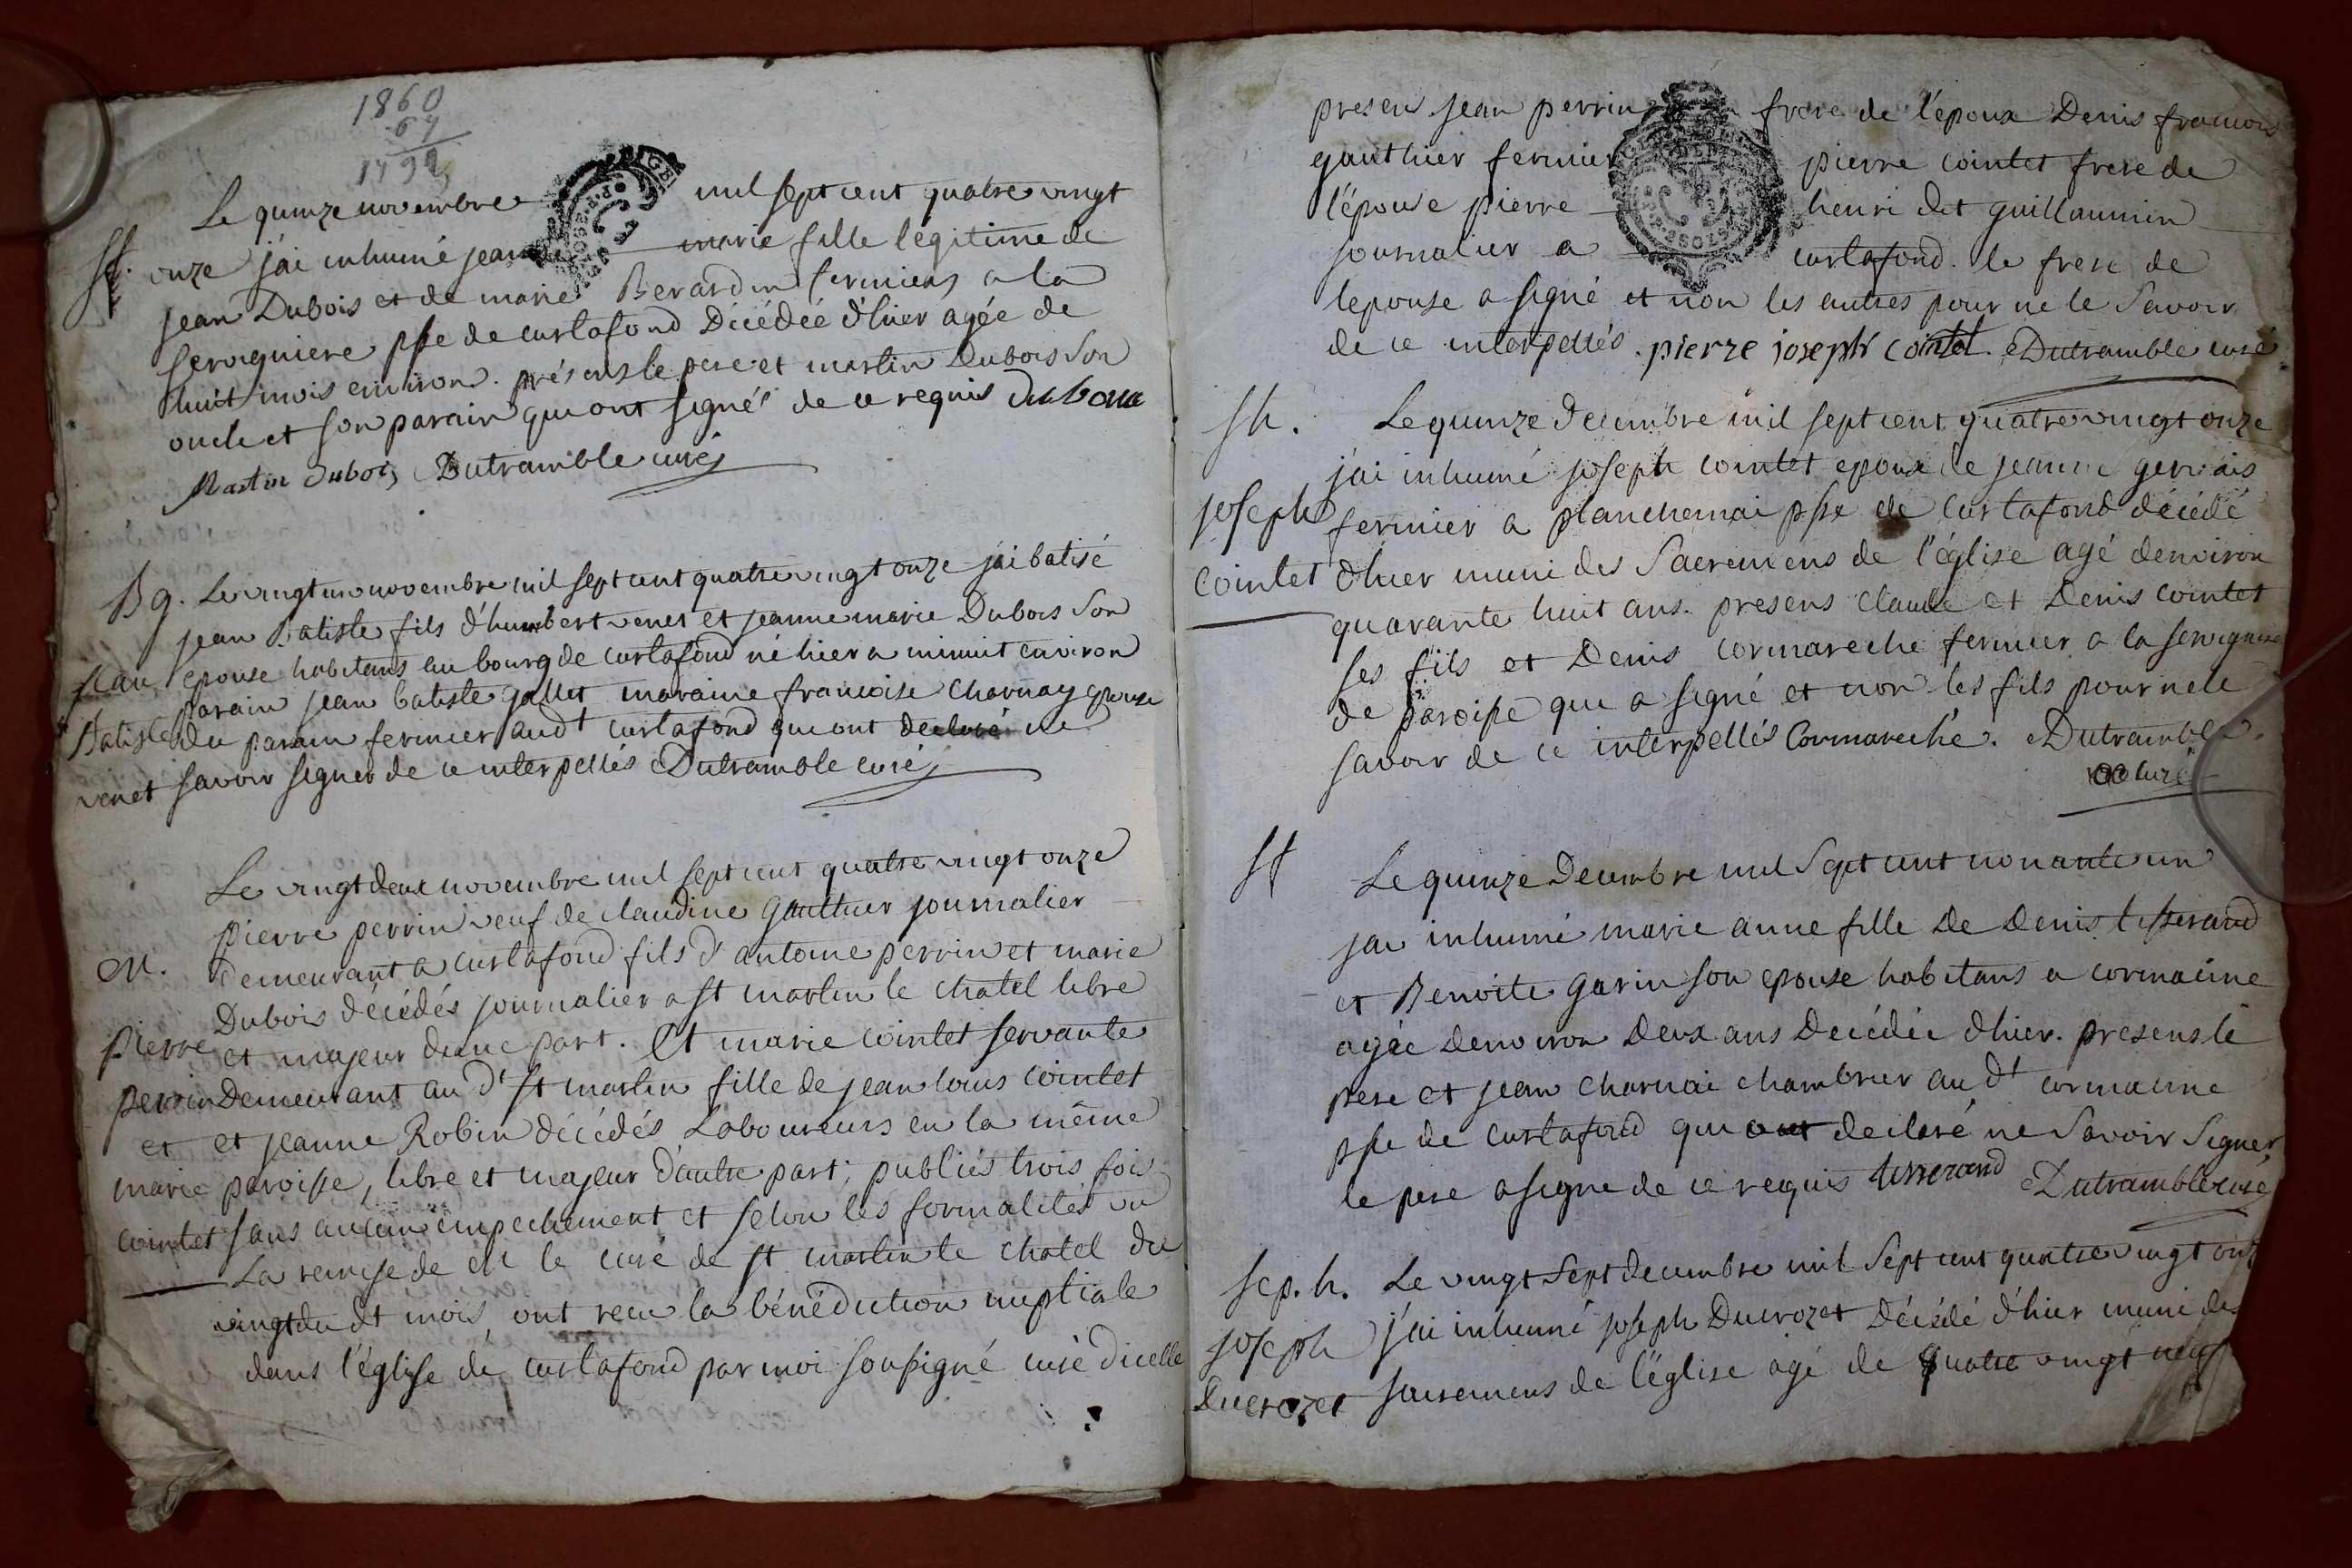 1860
67
1793
Le quinze novembre mil sept cent quatre vingt
Sf. onze j'ai inhumé jeanne marie fille legitime de
jean Dubois et de marie Berardin fermiers a la
serviguiere psse de curtafond Décédée d'hier agée de
huit mois environ. présens le pere et martin Dubois Son
oncle et son parain qui ont signés de ce requis dubois
Martin dubois Dutramble curé
Bg. Le vingt un novembre mil sept cent quatre vingt onze j'ai batisé
jean Batiste fils d'humbert venet et jeanne marie Dubois Son
jean epouse habitans au bourg de curtafond né hier a minuit environ
parain jean batiste gallet maraine francoise charnay epouse
Batiste du parain fermier aud^t curtafond qui ont declaré ne
venet savoir signer de ce interpellés Dutramble curé
Le vingt deux novembre mil sept cent quatre vingt onze
pierre perrin veuf de claudine gauthier journalier
M. demeurant a curtafond fils d'antoine perrin et marie
Dubois décédés journalier a st martin le chatel libre
pierre et majeur d'une part. Et marie cointet servante
perrin Demeurant au d^t st martin fille de jean louis cointet
et et jeanne Robin décédés Laboureurs en la même
marie paroisse, libre et majeur d'autre part; publiés trois fois
cointet sans aucun empechement et selon les formalités vu
La remise de M le curé de st martin le chatel du
vingt du dt mois, ont recu la bénédiction nuptiale
dans l'église de curtafond par moi soussigné curé dicelle
presens jean perrin frere de l'epoux Denis francois
gauthier fermier pierre cointet frere de
l'épouse pierre henri dit guillaumin
journalier a curtafond. le frere de
lepouse a signé et non les autres pour ne le Savoir
de ce interpellés. pierre joseph cointet. Dutramble curé
Sh. Le quinze decembre mil sept cent quatre vingt onze
j'ai inhumé joseph cointet epoux de jeanne gervais
joseph fermier a planchemai psse de Curtafond décédé
cointet d'hier muni des Sacremens de l'église agé denviron
quarante huit ans. presens claude et Denis cointet
ses fils et Denis cormareche fermier a la
de paroisse qui a signé et non les fils pour ne le
savoir de ce interpellés Cormareche. Dutramble
curé
Sf Le quinze Decembre mil Sept cent nonante un
jai inhumé marie anne fille De Denis tisserand
et Benoite garin son epouse habitans a cormacine
agée denviron Deux ans Decédée d'hier. presens le
pere et jean charnai chambrier au d^t cormacine
psse de curtafond qui ont declaré ne Savoir Signer
le pere a signe de ce requis tisserand Dutramble curé
Sep. h. Le vingt Sept decembre mil Sept cent quatre vingt onze
joseph j'ai inhumé joseph Ducrozet Décédé d'hier muni des
Ducrozet sacremens de l'église agé de quatre vingt neuf